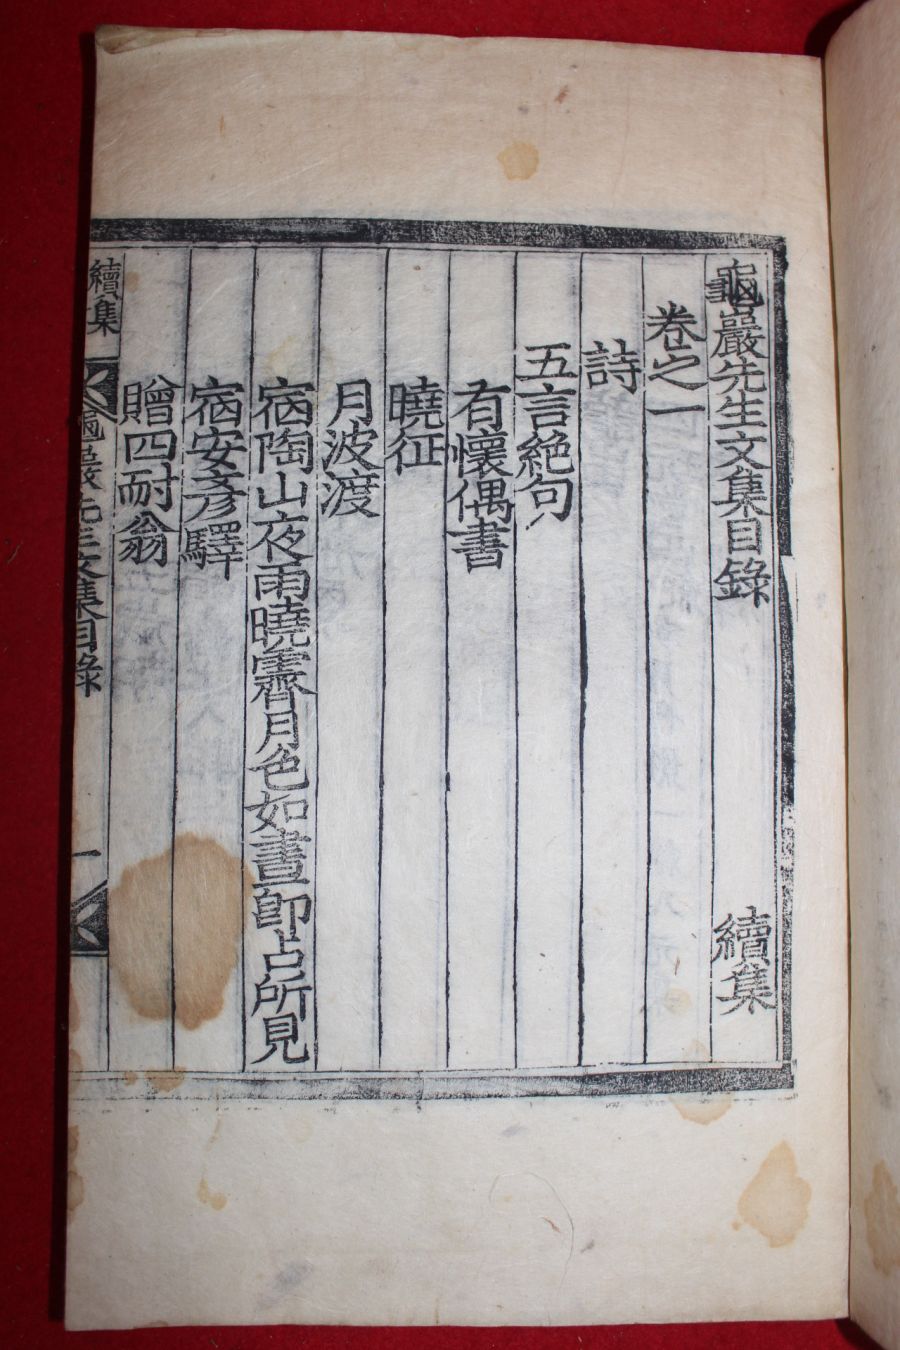 龜巖先生文集目錄 續集
卷之一
詩
五言絕句
有懷偶書
曉征
月波渡
宿陶山夜雨曉霽月色如晝卽占所見
宿安彥驛
贈四耐翁
續集 龜巖先生文集目錄 一